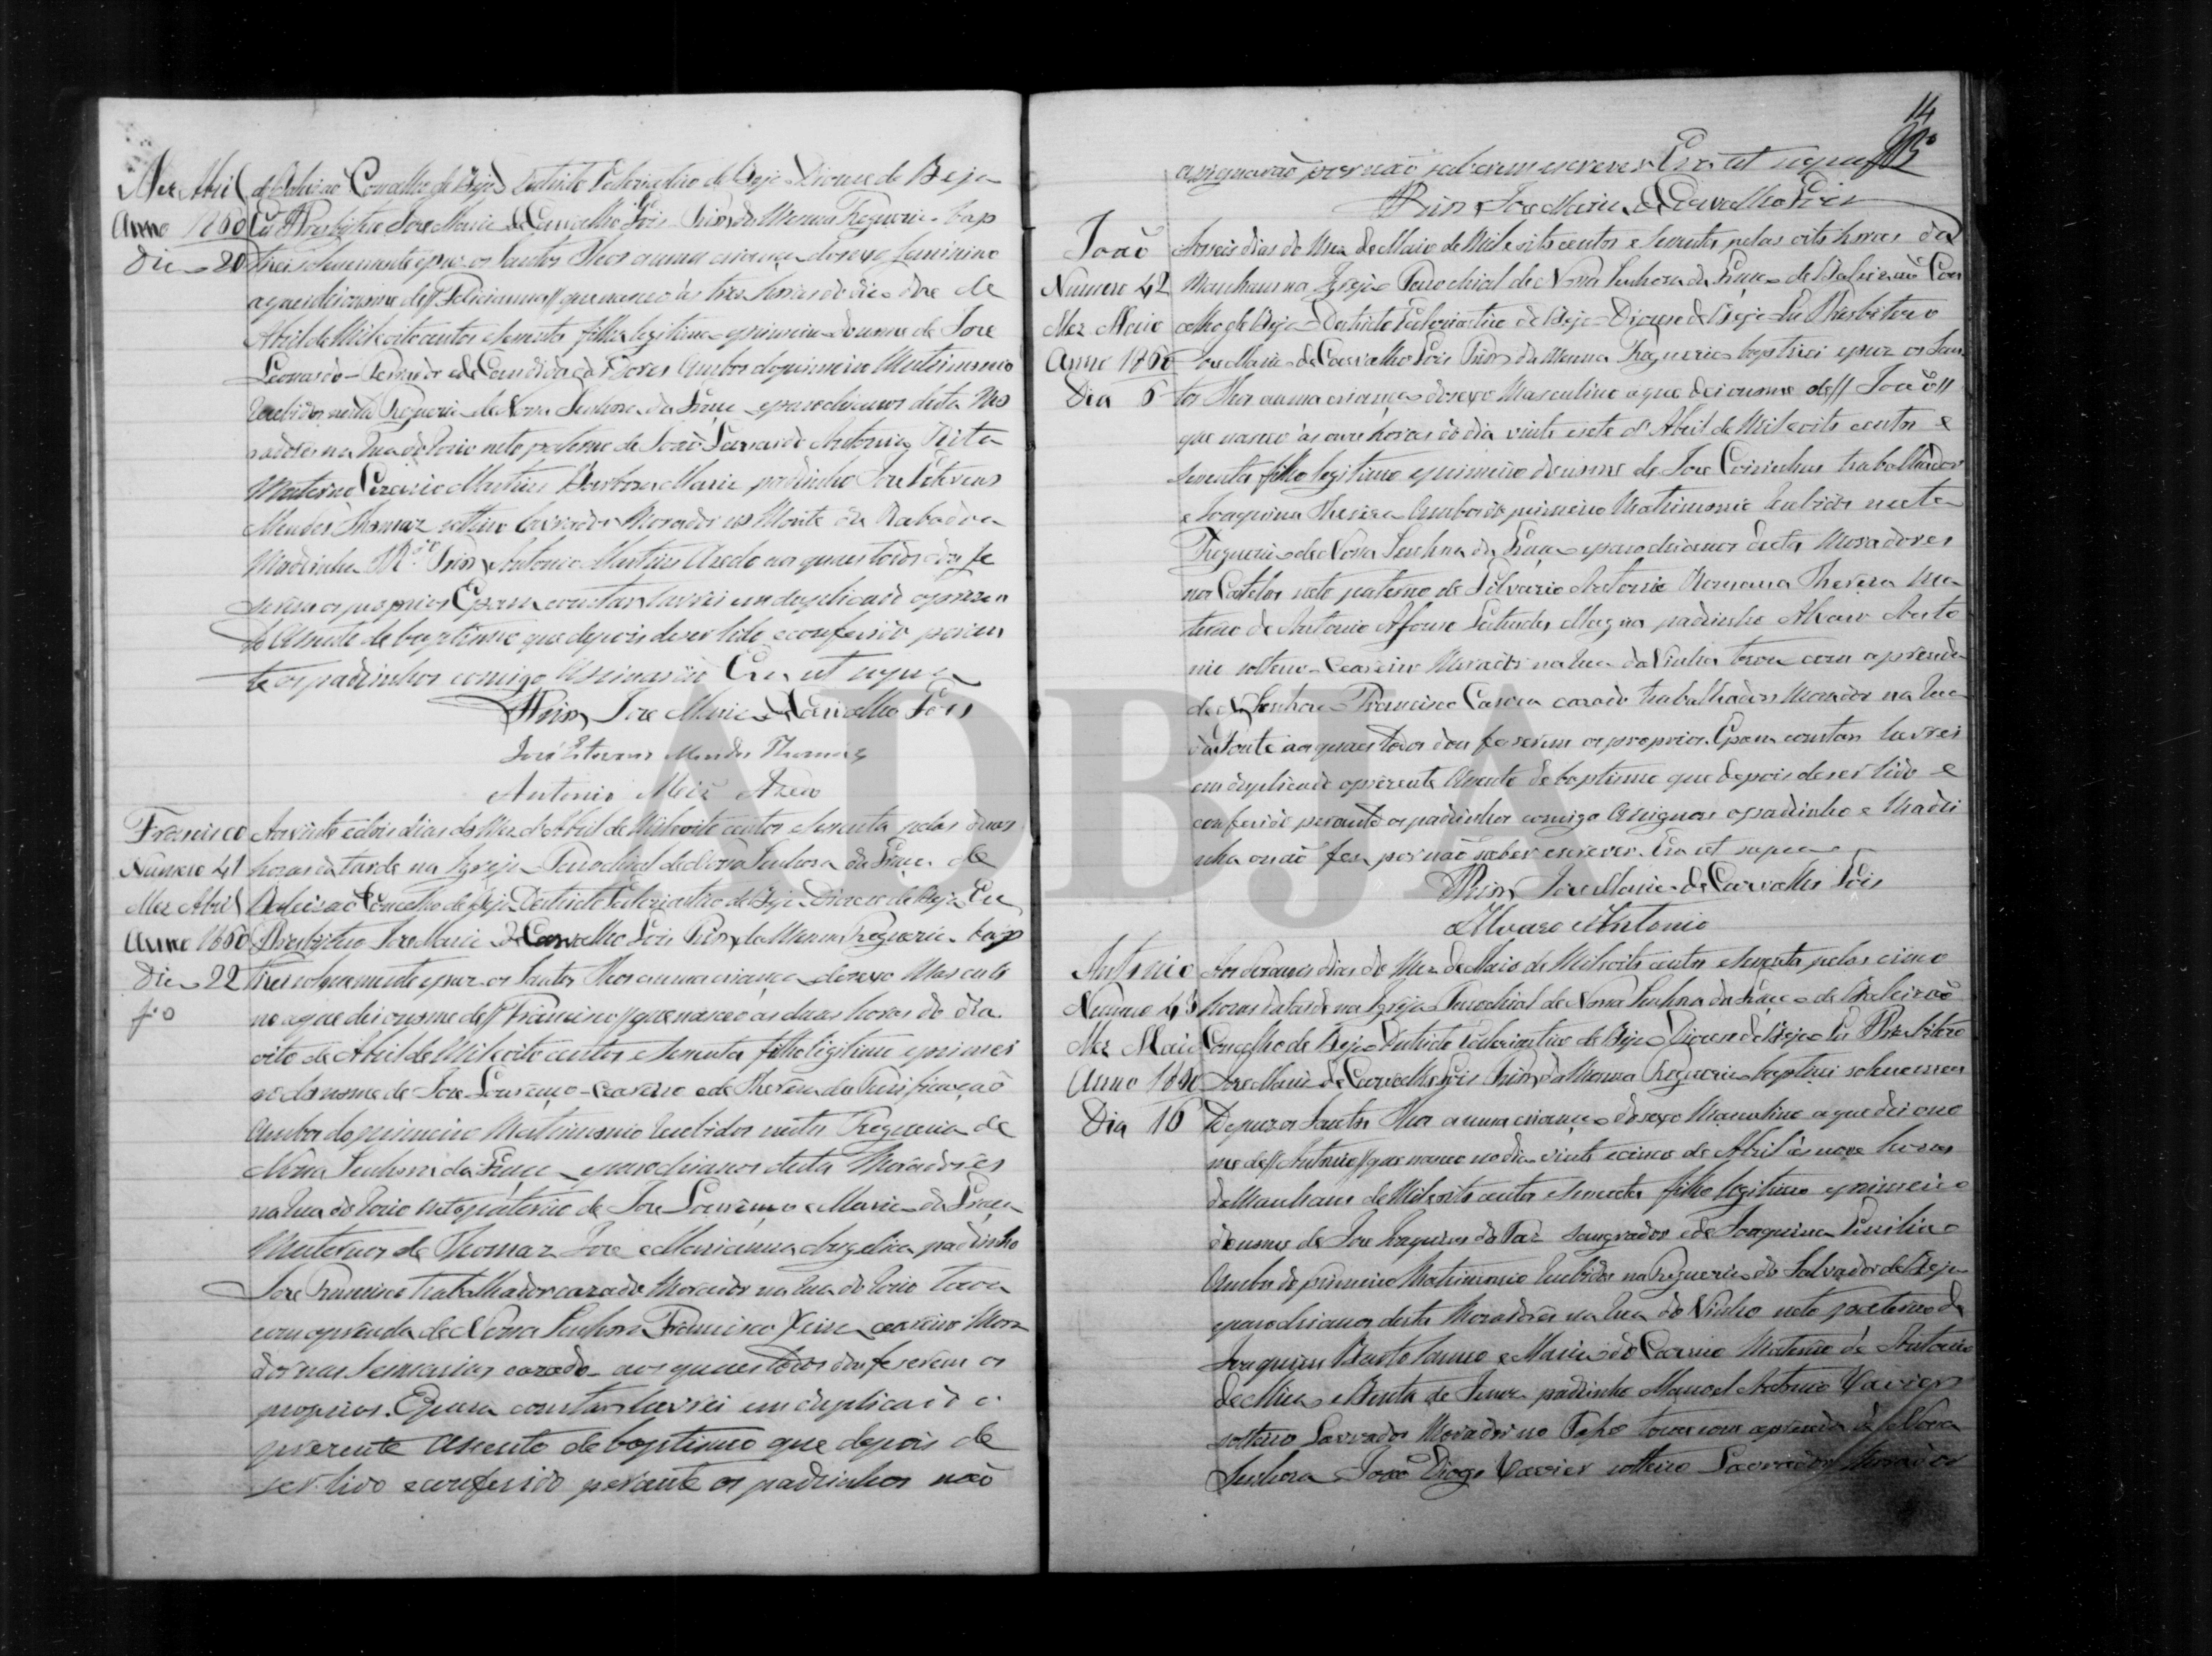 Mez Abril de Baleizão Concelho de Beja Destricto Ecleziastico de Beja Diocese de Beja
Anno 1860 Eu Presbitero Jose Maria de Carvalho Góis Prior da Mesma Freguezia bap
Dia 20 tizei solenemente e puz os Santos Oleos a uma criança do sexo feminino
a quem dei o nome de // Feliciana // que nasceo ás tres horas do dia doze de
Abril de Mil e oito centos e secenta filha legitima e primeira do nome de Jose
Leonardo e de Candida das Dores Ambos do primeiro Matrimonio
recebidos nesta Freguezia de Nossa Senhora da Graça e parochianos desta Mo
radores na Rua do Rocio neto paterno de João Leonardo Antonia Rita
Materno Martins Barbora Maria padrinho Jose Estevens
Mendes Thomaz solteiro Lavrador Morador no Monte da Rabadoa
Madrinha Prior Antonio Martins Azedo aos quaes todos dou fe
serem os proprios E para constar lavrei em duplicado o prezen
te Assento de baptismo que depois de ser lido e conferido peran
te os padrinhos comigo Assinarão Era ut supra
O Prior Jose Maria de Carvalho Góis
José Estevens Mendes Thomaz
Antonio
Francisco Aos vinte e dois dias do Mez de Abril de Mil e oito centos e secenta pelas duas
Numero 41 horas da tarde na Igreja Parochial de Nossa Senhora da Graça de
Mez Abril Baleizão Concelho de Beja Destricto Ecleziastico de Beja Diocese de Beja Eu
Anno 1860 Presbitero Jose Maria de Carvalho Góis Prior da Mesma Freguezia bap
Dia 22 tizei solenemente e puz os Santos Oleos a uma criança do sexo Masculi
no a quem dei o nome de // Francisco // que nasceo as duas horas do dia
oito de Abril de Mil e oito centos e secenta filho legitimo e primei
ro do nome de Jose Lourenço seareiro e de Thereza da Purificação
Ambos do primeiro Matrimonio recebidos nesta Freguezia de
Nossa Senhora da Graça e parochianos desta Moradores
na Rua do Rocio neto paterno de Jose Lourenço e Maria da Graça
Maternos de Thomaz Jose e Marianna Angelica padrinho
Jose Francisco trabalhador cazado Morador na Rua do Rocio tocou
com a prenda de Nossa Senhora Francisco seareiro Mora
dor nas cazado aos quaes todos dou fe serem os
proprios. E para constar lavrei em duplicado o
prezente Assento de baptismo que depois de
ser lido e conferido perante os padrinhos não
14
assignarão por não saberem escrever Era ut supra
O Prior Jose Maria de Carvalho Góis
João Aos seis dias do Mez de Maio de Mil e oito centos e secenta pelas oito horas da
Numero 42 Manhaã na Igreja Parochial de Nossa Senhora da Graça de Baleizão Con
Mez Maio celho de Beja Destricto Ecleziastico de Beja Diocese de Beja Eu Presbitero
Anno 1860 Jose Maria de Carvalho Góis Prior da Mesma Freguezia baptizei e puz os San
Dia 6 tos Oleos a uma criança do sexo Masculino a que dei o nome de // João //
que nasceo ás onze horas do dia vinte e sete de Abril de Mil e oito centos e
secenta filho legitimo e primeiro do nome de Jose trabalhador
e Joaquina Thereza Ambos do primeiro Matrimonio recebidos nesta
Freguezia de Nossa Senhora da Graça e parochianos desta Moradores
nos Castelos neto paterno de Silverio Antonio Romana Thereza Ma
terno de Antonio Afonso Magna padrinho Alvaro Anto
nio solteiro seareiro Morador na Rua da Vinha tocou com a prenda
de N Senhora Francisco cazado trabalhador Morador na Rua
da Fonte aos quaes todos dou fe serem os proprios. E para constar lavrei
em duplicado o prezente Assento de baptismo que depois de ser lido e
conferido perante os padrinhos comigo Assignou o padrinho e Madri
nha o não fez por não saber escrever. Era ut supra
O Prior Jose Maria de Carvalho Góis
Alvaro Antonio
Antonio Aos dezaseis dias do Mez de Maio de Mil e oito centos e secenta pelas cinco
Numero 43 horas da tarde na Igreja Parochial de Nossa Senhora da Graça de Baleizão
Mez Maio Concelho de Beja Destricto Ecleziastico de Beja Diocese de Beja Eu Presbitero
Anno 1860 Jose Maria de Carvalho Góis Prior da Mesma Freguezia baptizei solenemen
Dia 16 te e puz os Santos Oleos a uma criança do sexo Masculino a que dei o no
me de // Antonio // que nasceo no dia vinte e cinco de Abril ás nove horas
da Manhaã de Mil e oito centos e secenta filho legitimo e primeiro
do nome de Jose Joaquim da Paz sangrador e de Joaquina
Ambos do primeiro Matrimonio recebidos na Freguezia do Salvador de Beja
e parochianos desta Moradores na Rua do Vinho neto paterno de
Joaquim e Maria do Carmo Materno de Antonio
e Benta de Jesus padrinho Manoel Antonio Xavier
solteiro Lavrador Morador no tocou com a prenda de Nossa
Senhora João Diogo Xavier solteiro Lavrador Morador
ADBJA